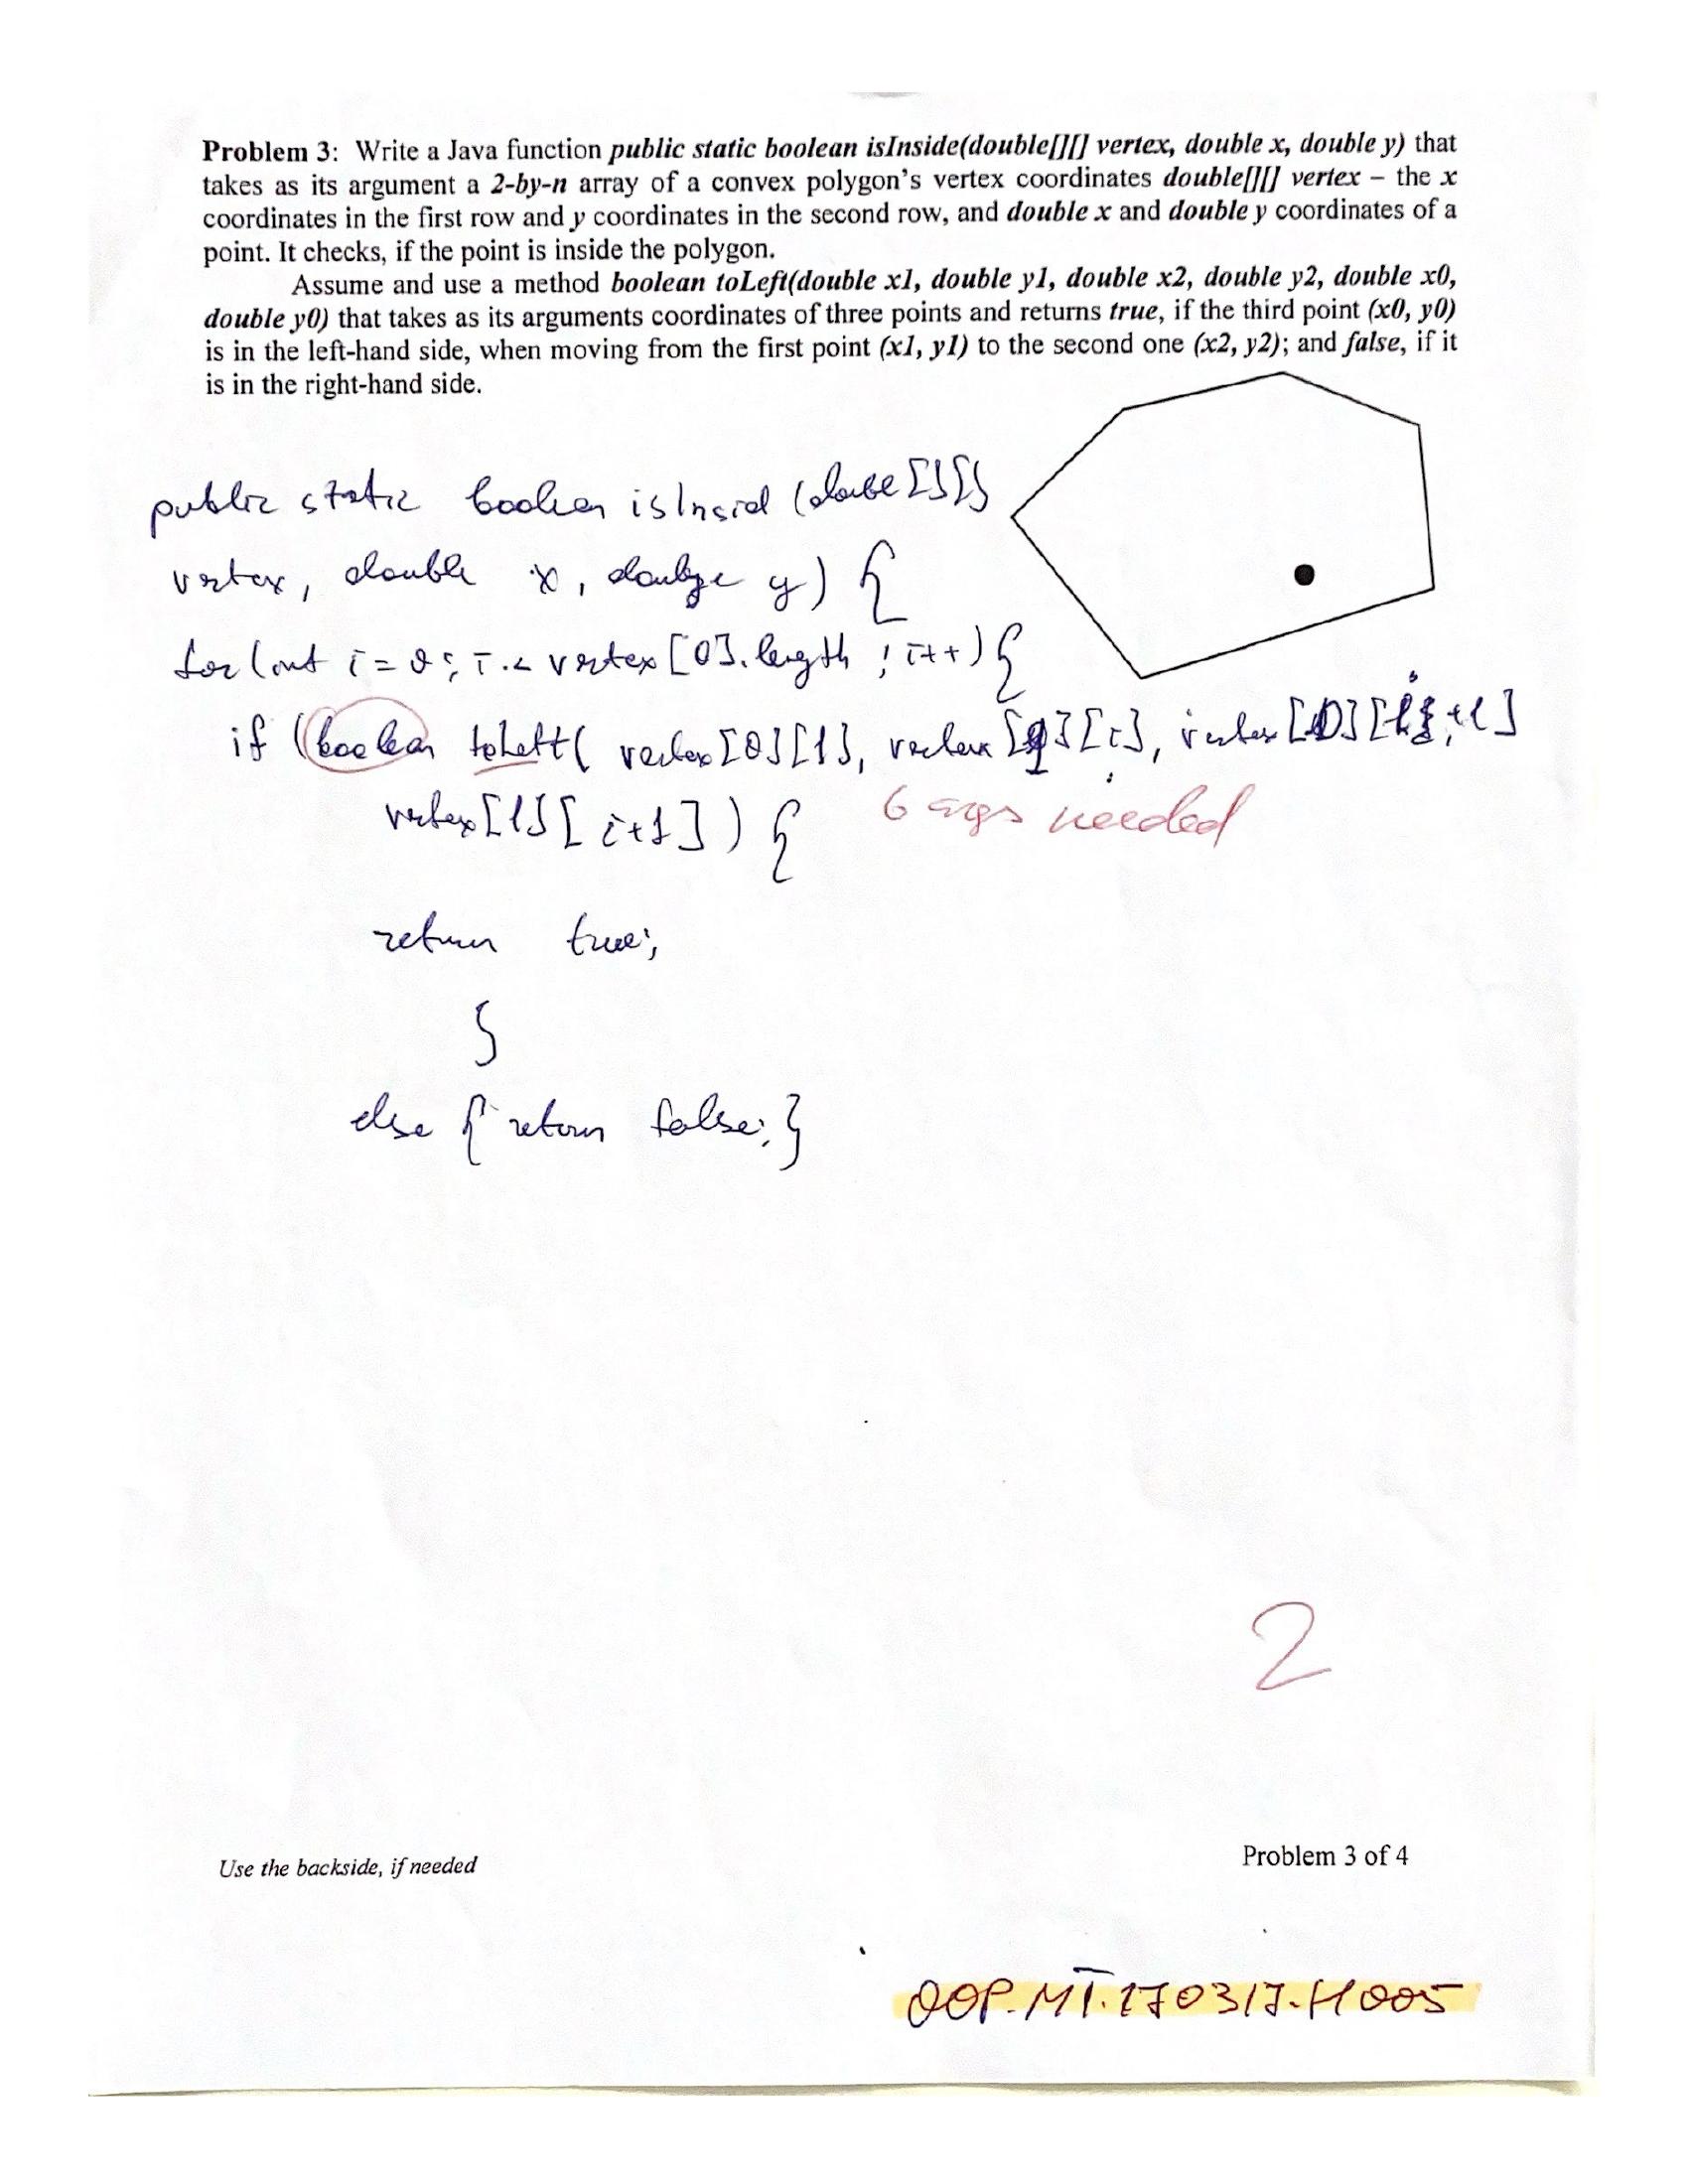 Problem 3: Write a Java function public static boolean isInside(double[][] vertex, double x, double y) that
takes as its argument a 2-by-n array of a convex polygon's vertex coordinates double[][] vertex – the x
coordinates in the first row and y coordinates in the second row, and double x and double y coordinates of a
point. It checks, if the point is inside the polygon.
Assume and use a method boolean toLeft(double x1, double y1, double x2, double y2, double x0,
double y0) that takes as its arguments coordinates of three points and returns true, if the third point (x0, y0)
is in the left-hand side, when moving from the first point (x1, y1) to the second one (x2, y2); and false, if it
is in the right-hand side.
public static boolean isInsid (double[][]
vertex, double x, double y) {
for (int i = 0; i < vertex[0].length; i++) {
if (boolean toLeft( vertex[0][1], vertex [1][i], vertex[0][i+1]
vertex[1][i+1]) {
6 args needed
return true;
}
else { return false; }
2
Use the backside, if needed
Problem 3 of 4
OOP.MT.170317.H005